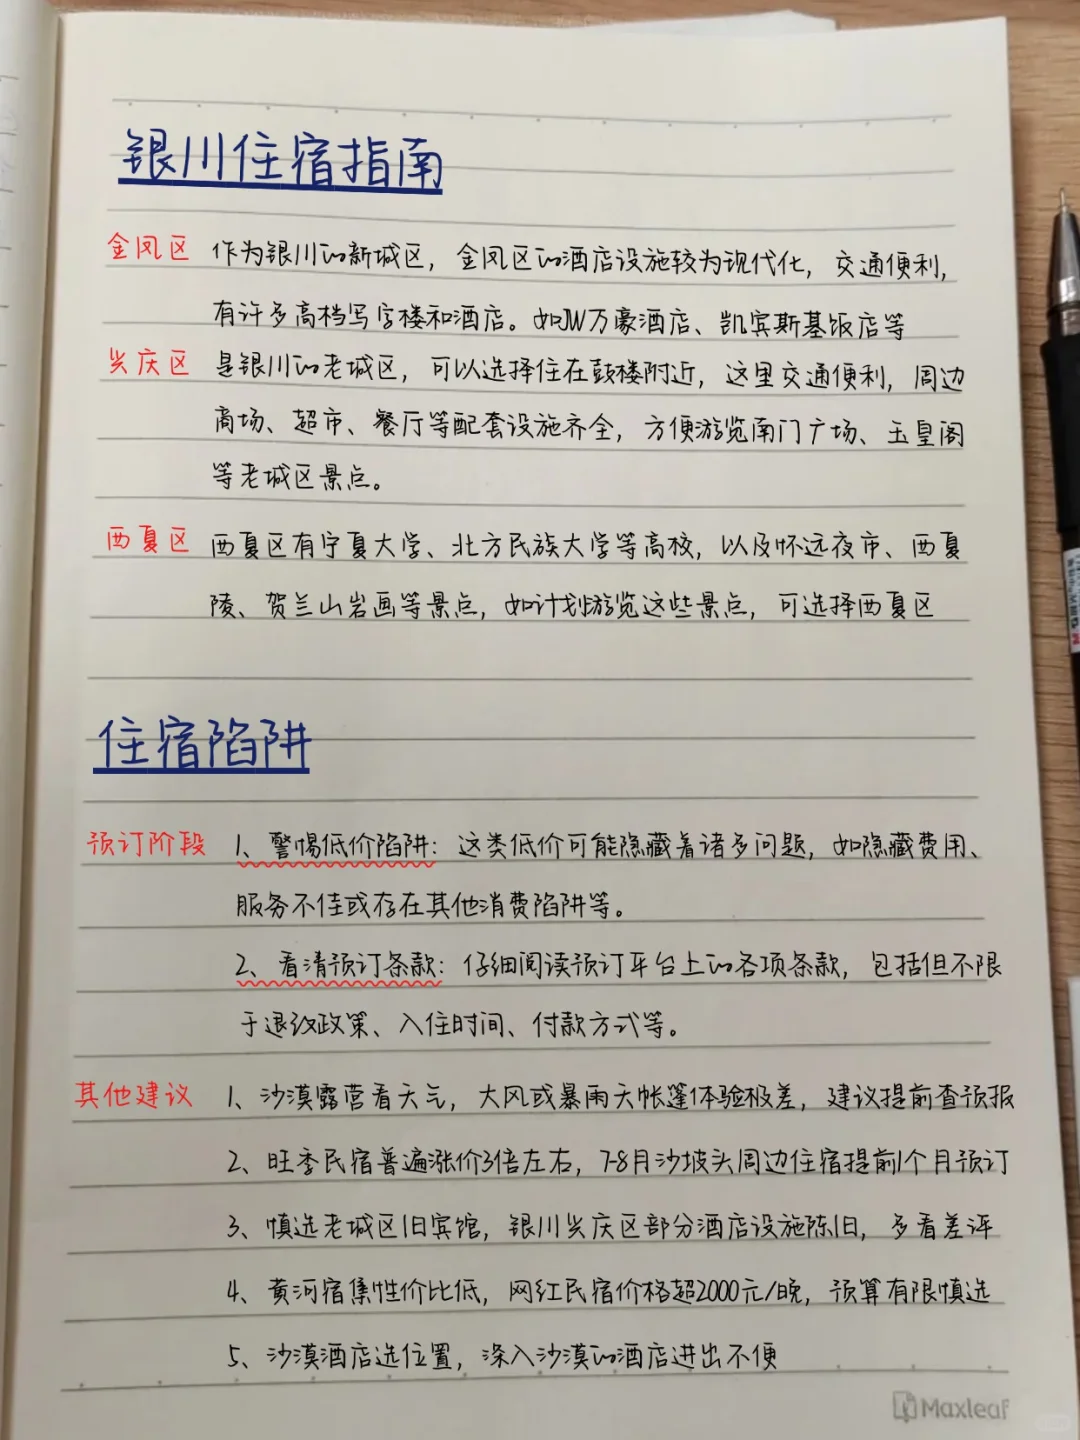 银川住宿指南
金凤区 作为银川的新城区，金凤区的酒店设施较为现代化，交通便利，
有许多高档写字楼和酒店。如JW万豪酒店、凯宾斯基饭店等
兴庆区 是银川的老城区，可以选择住在鼓楼附近，这里交通便利，周边
商场、超市、餐厅等配套设施齐全，方便游览南门广场、玉皇阁
等老城区景点。
西夏区 西夏区有宁夏大学、北方民族大学等高校，以及怀远夜市、西夏
陵、贺兰山岩画等景点，如计划游览这些景点，可选择西夏区
住宿陷阱
预订阶段 1、警惕低价陷阱：这类低价可能隐藏着诸多问题，如隐藏费用、
服务不佳或存在其他消费陷阱等。
2、看清预订条款：仔细阅读预订平台上的各项条款，包括但不限
于退改政策、入住时间、付款方式等。
其他建议 1、沙漠露营看天气，大风或暴雨天帐篷体验极差，建议提前查预报
2、旺季民宿普遍涨价3倍左右，7-8月沙坡头周边住宿提前1个月预订
3、慎选老城区旧宾馆，银川兴庆区部分酒店设施陈旧，多看差评
4、黄河宿集性价比低，网红民宿价格超2000元/晚，预算有限慎选
5、沙漠酒店选位置，深入沙漠的酒店进出不便
Maxleaf